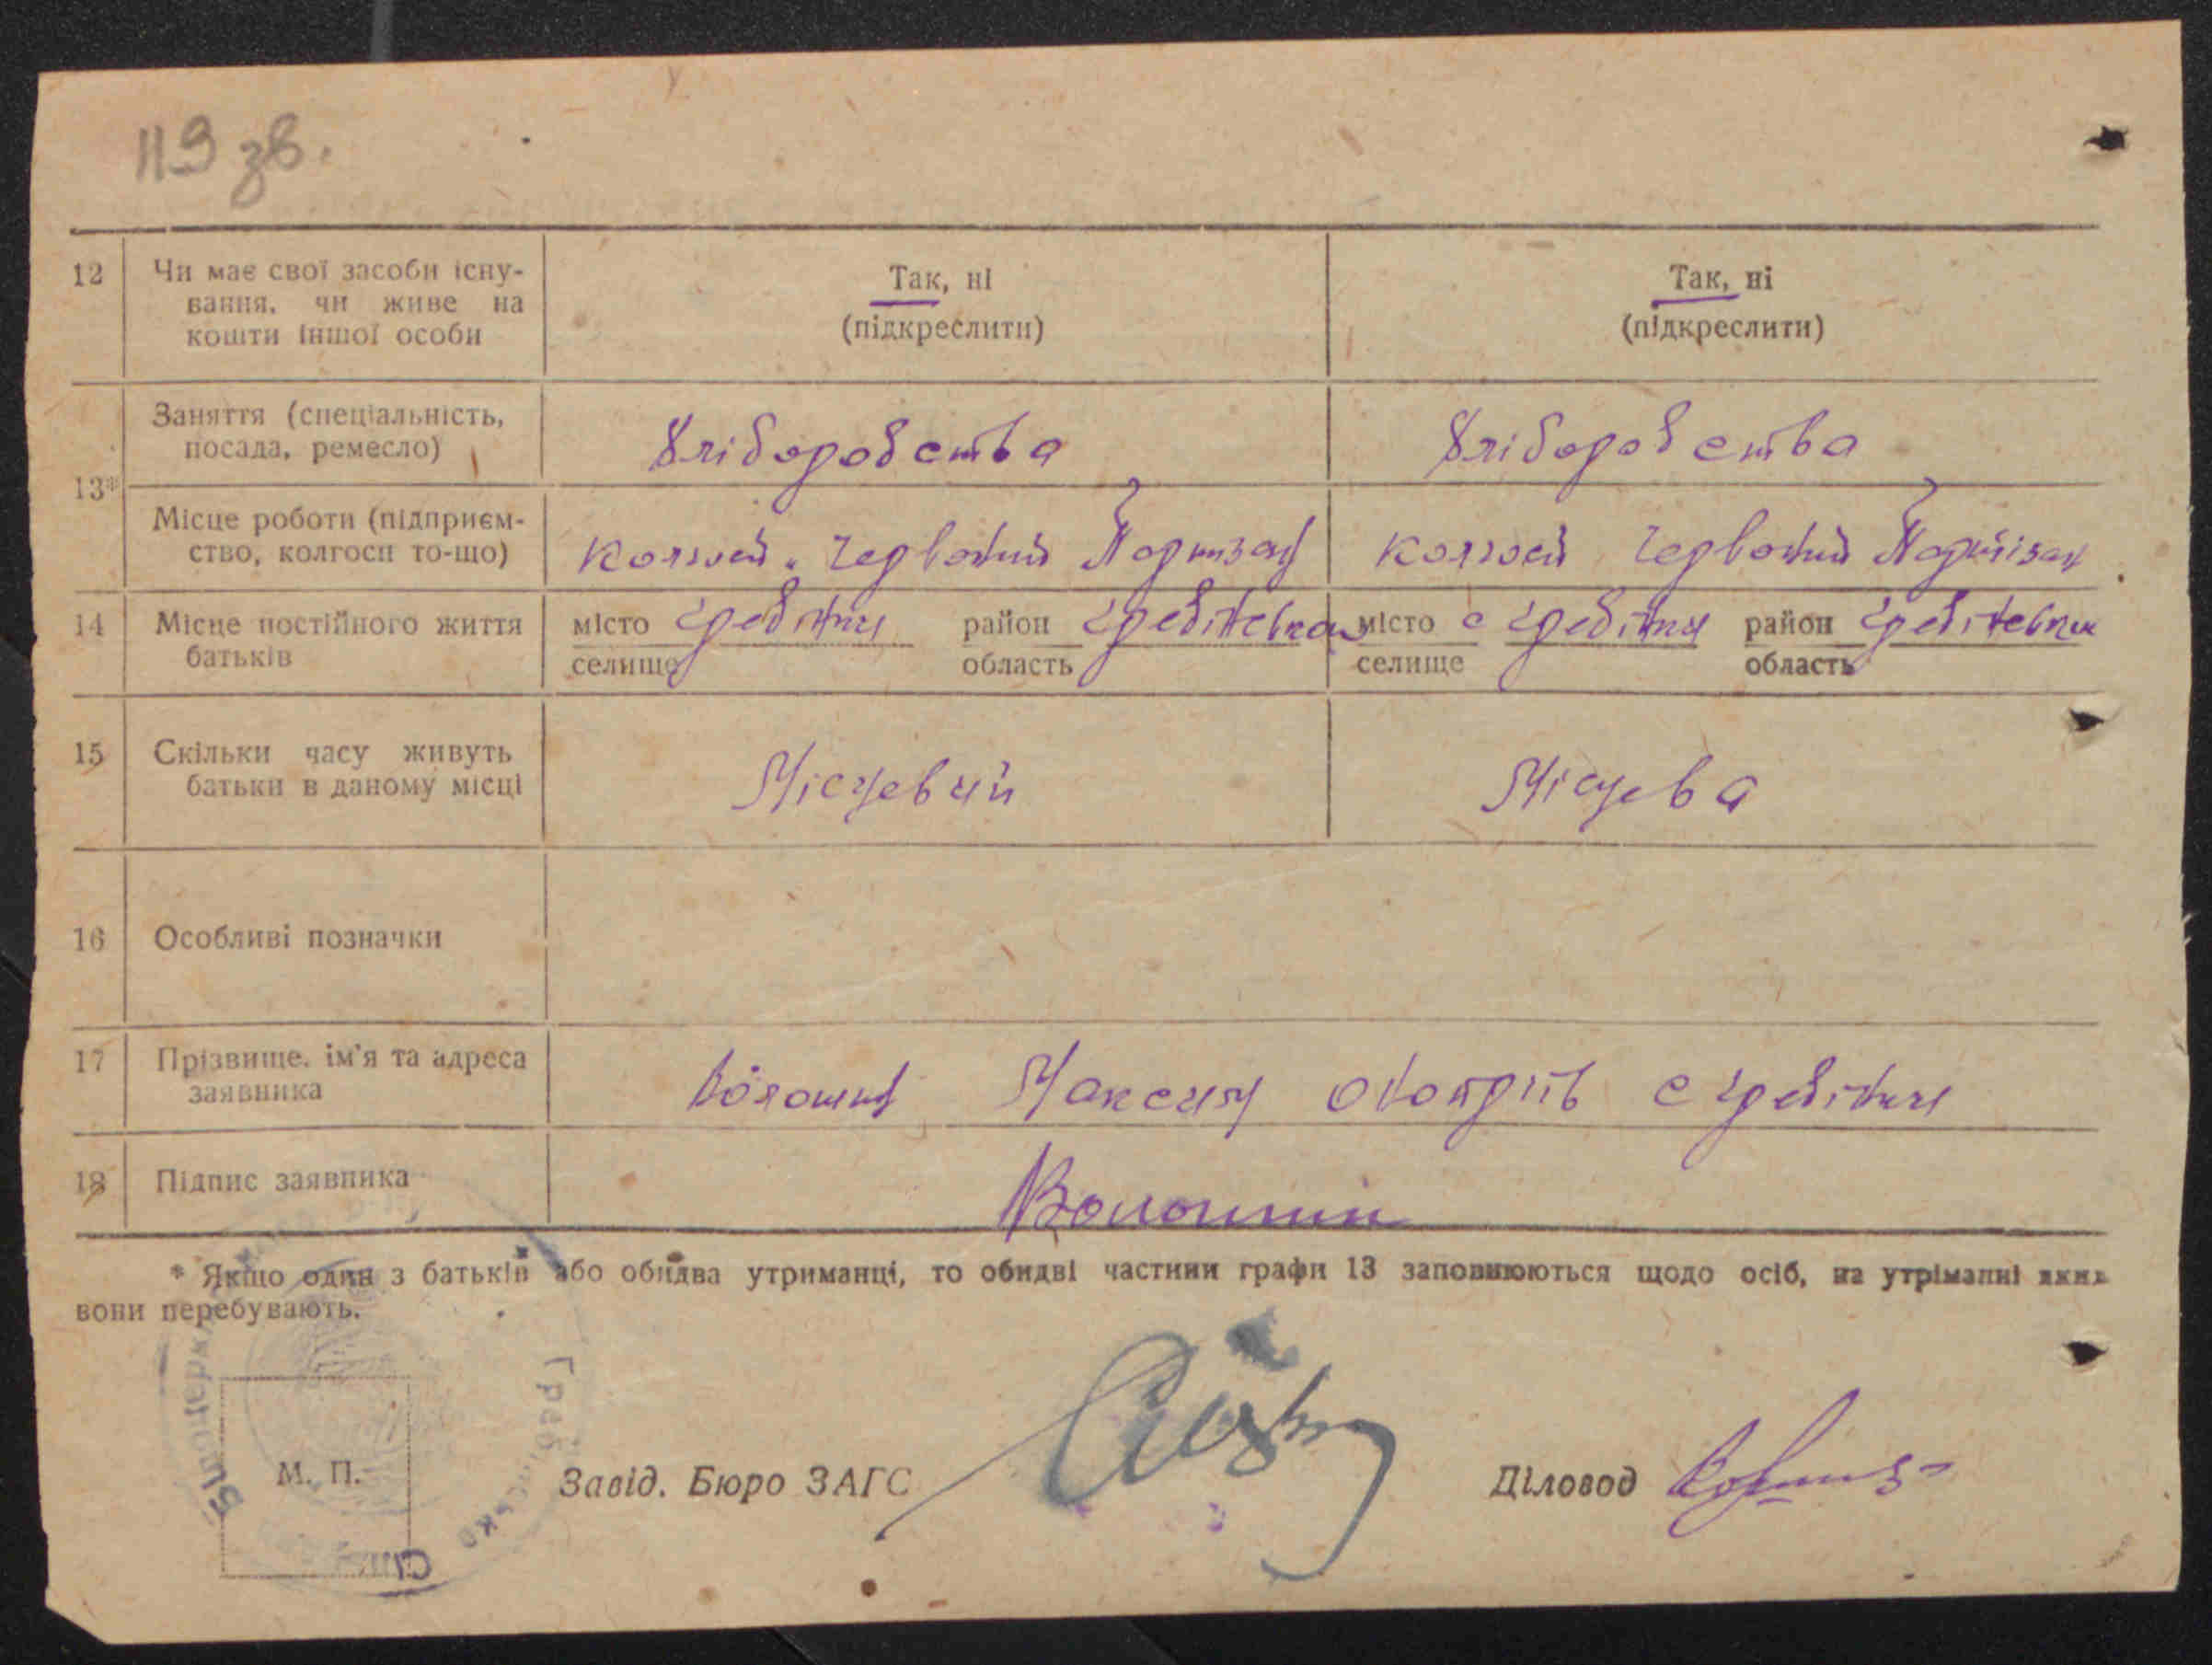 119 зв.
12 Чи має свої засоби існу- Так, ні Так, ні
вання, чи живе на (підкреслити) (підкреслити)
кошти іншої особи
Заняття (спеціальність, Хліборобства Хліборобства
посада, ремесло)
13*
Місце роботи (підприєм- Червоний Партизан Червоний Партізан
ство, колгосп то-що)
14 Місце постійного життя місто Гребінки район місто с Гребінки район
батьків селище область селище область
15 Скільки часу живуть Місцевий Місцева
батьки в даному місці
16 Особливі позначки
17 Прізвище, ім'я та адреса Волошин Максим с Гребінки
заявника
18 Підпис заявника Волошин
* Якщо один з батьків або обидва утриманці, то обидві частини графи 13 заповнюються щодо осіб, на утріманні яких
вони перебувають.
М. П. Завід. Бюро ЗАГС Діловод